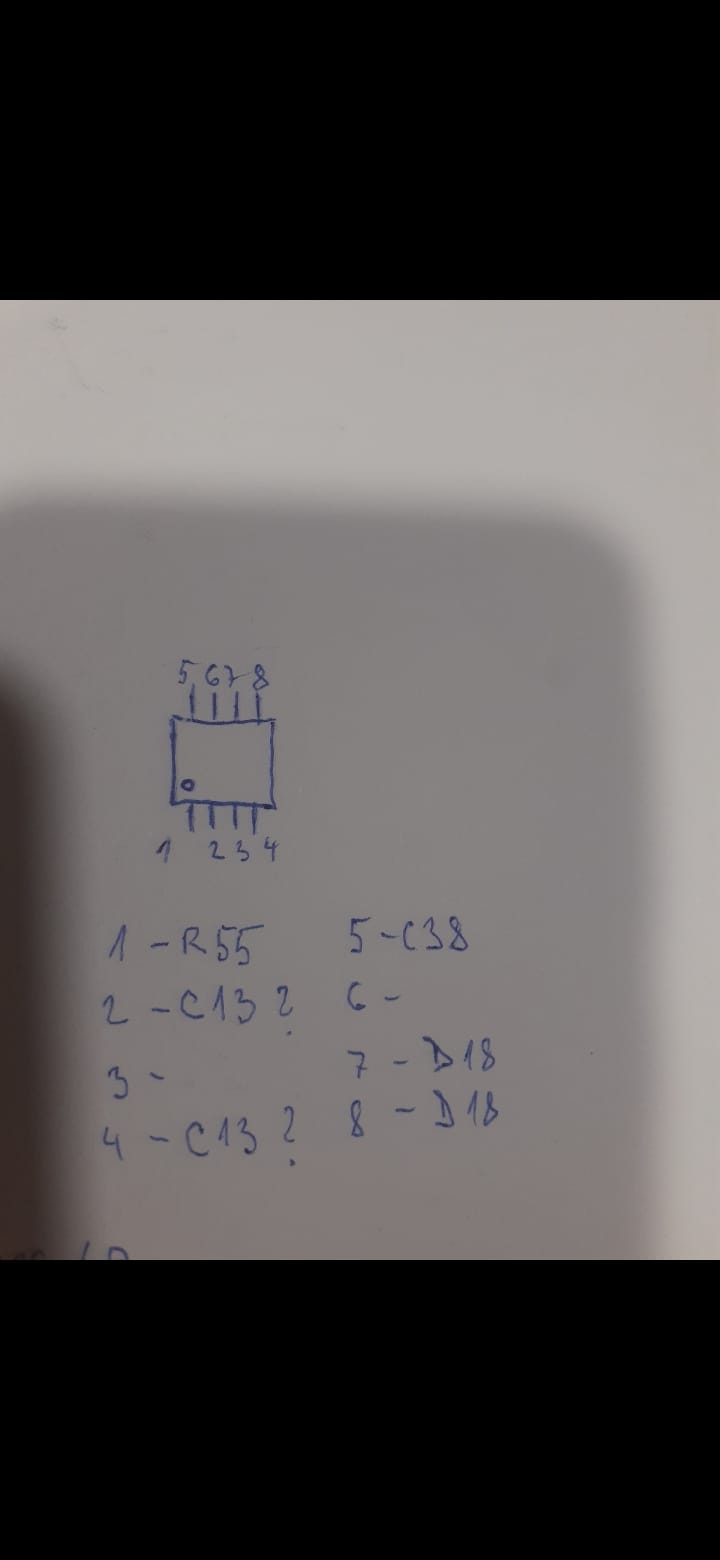 5 6 7 8
1 2 3 4
1 - R55 5 - C38
2 - C13 ? 6 -
3 - 7 - D18
4 - C13 ? 8 - D18